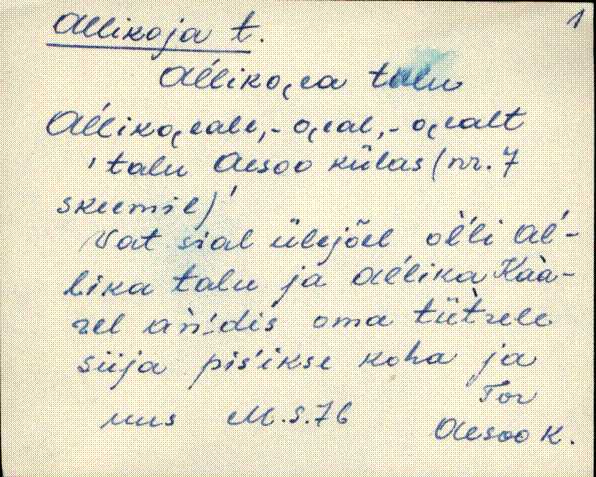 Allikoja t. 1
Al´liko̭ea talu
Al´liko̭eale, -o̭eal, -o̭ealt
'talu Aesoo külas (nr. 7
skeemil)'
Vat sial ülejõel ol´li Al´-
lika talu ja al´lika Kàa-
rel àn´dis oma tüt̀rele
siija pis´ikse koha ja
Tor
uus M.S.76
Aesoo K.